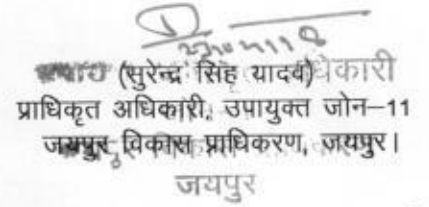 (सुरेन्द्र सिंह यादव)
प्राधिकृत अधिकारी, उपायुक्त जोन–11
जयपुर विकास प्राधिकरण, जयपुर।
जयपुर